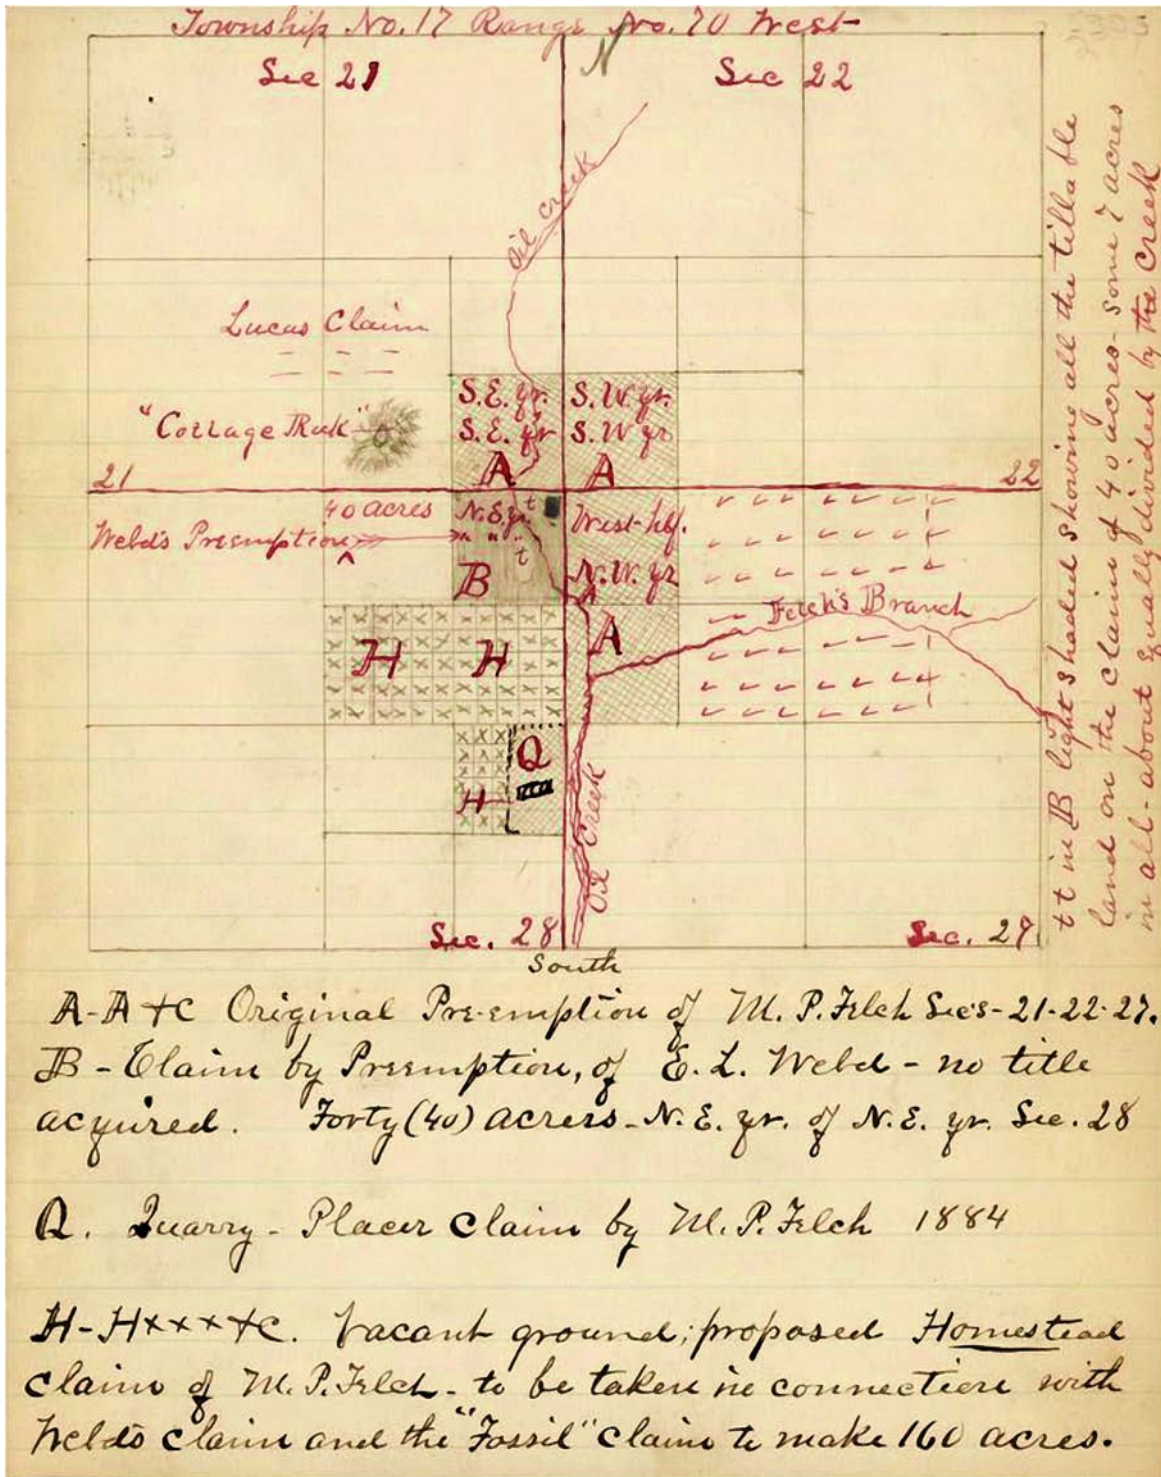 Township No. 17 Range No. 70 West
N
Sec 21
Sec 22
Oil Creek
Lucas Claim
"Cottage Rock"
S.E. qr. S.W qr.
S.E. qr S.W qr
A A
21
22
40 acres
Webd's Preemption
N.E. qr
" " "
t
t
B
West-hlf.
N.W. qr
A
A
Felch's Branch
H H
Q
H
Oil Creek
Sec. 28
Sec. 27
South
t t in B light shaded showing all the tillable
land on the claim of 40 acres - some 7 acres
in all - about equally divided by the Creek
A-A +C Original Pre-emption of M. P. Felch Sec's - 21-22-27.
B - Claim by Preemption, of E. L. Webd - no title
acquired. Forty (40) acrers - N.E. qr. of N.E. qr. Sec. 28
Q. Quarry - Placer Claim by M. P. Felch 1884
H-H×××+C. Vacant ground; proposed Homestead
claim of M. P. Felch - to be taken in connection with
Webd's claim and the "Fossil" claim to make 160 acres.